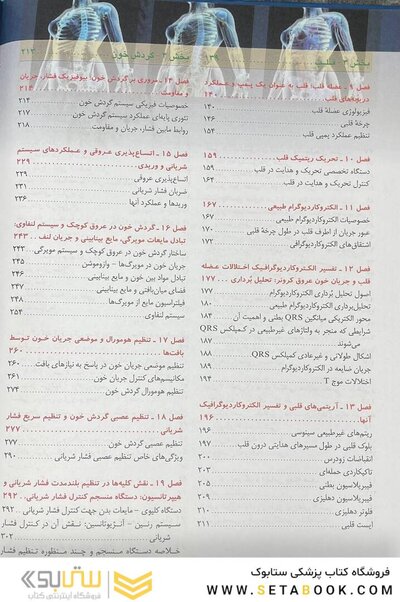 بخش ۳ قلب ۱۳۹
فصل ۹ـ عضله قلب؛ قلب به عنوان یک پمپ و عملکرد
دریچه‌های قلب ۱۴۰
فیزیولوژی عضلهٔ قلب ۱۴۰
چرخهٔ قلبی ۱۴۶
تنظیم عملکرد پمپی قلب ۱۵۴
فصل ۱۰ـ تحریک ریتمیک قلب ۱۵۹
دستگاه تخصصی تحریک و هدایت در قلب ۱۵۹
کنترل تحریک و هدایت در قلب ۱۶۴
فصل ۱۱ـ الکتروکاردیوگرام طبیعی ۱۶۷
خصوصیات الکتروکاردیوگرام طبیعی ۱۶۷
عبور جریان از اطراف قلب در طول چرخهٔ قلبی ۱۷۰
اشتقاق‌های الکتروکاردیوگرافی ۱۷۲
فصل ۱۲ـ تفسیر الکتروکاردیوگرافیک اختلالات عضله
قلب و جریان خون عروق کرونر: تحلیل بُرداری ۱۷۷
اصول تحلیل بُرداری الکتروکاردیوگرام ۱۷۷
تحلیل‌برداری الکتروکاردیوگرام طبیعی ۱۸۰
محور الکتریکی میانگین QRS بطنی و اهمیت آن ۱۸۴
شرایطی که منجر به ولتاژهای غیرطبیعی در کمپلکس QRS
می‌شوند ۱۸۷
اشکال طولانی و غیرعادی کمپلکس QRS ۱۸۸
جریان ضایعه در الکتروکاردیوگرام ۱۸۹
اختلالات موج T ۱۹۴
فصل ۱۳ـ آریتمی‌های قلبی و تفسیر الکتروکاردیوگرافیک
آنها ۱۹۶
ریتم‌های غیرطبیعی سینوسی ۱۹۶
بلوک قلبی در طول مسیرهای هدایتی درون قلب ۱۹۷
انقباضات زودرس ۲۰۰
تاکیکاردی حمله‌ای ۲۰۲
فیبریلاسیون بطنی ۲۰۵
فیبریلاسیون دهلیزی ۲۰۹
فلوتر دهلیزی ۲۱۰
ایست قلبی ۲۱۱
بخش ۴ گردش خون ۲۱۳
فصل ۱۴ـ مروری بر گردش خون؛ بیوفیزیک فشار، جریان
و مقاومت ۲۱۴
خصوصیات فیزیکی سیستم گردش خون ۲۱۴
تئوری پایه‌ای عملکرد سیستم گردش خون ۲۱۷
روابط مابین فشار، جریان و مقاومت ۲۱۸
فصل ۱۵ـ اتساع‌پذیری عروقی و عملکردهای سیستم
شریانی و وریدی ۲۲۹
اتساع‌پذیری عروقی ۲۲۹
ضربان فشار شریانی ۲۳۱
وریدها و عملکرد آنها ۲۳۶
فصل ۱۶ـ گردش خون در عروق کوچک و سیستم لنفاوی:
تبادل مایعات مویرگی، مایع بینابینی و جریان لنف ۲۴۳
ساختار گردش خون در عروق کوچک و سیستم مویرگی ۲۴۳
جریان خون در مویرگ‌ها – وازوموشن ۲۴۵
تبادل مواد بین خون و مایع بینابینی ۲۴۵
فضای میان‌بافتی و مایع بینابینی ۲۴۷
فیلتراسیون مایع از مویرگ‌ها ۲۴۸
سیستم لنفاوی ۲۵۴
فصل ۱۷ـ تنظیم هومورال و موضعی جریان خون توسط
بافت‌ها ۲۶۰
تنظیم موضعی جریان خون در پاسخ به نیازهای بافت ۲۶۰
مکانیسم‌های کنترل جریان خون ۲۶۱
کنترل هومورال گردش خون ۲۷۴
فصل ۱۸ـ تنظیم عصبی گردش خون و تنظیم سریع فشار
شریانی ۲۷۷
تنظیم عصبی گردش خون ۲۷۷
ویژگی‌های خاص تنظیم عصبی فشار شریانی ۲۹۰
فصل ۱۹ـ نقش کلیه‌ها در تنظیم بلندمدت فشار شریانی و
هیپرتانسیون: دستگاه منسجم کنترل فشار شریانی ۲۹۲
دستگاه کلیوی – مایعات بدن جهت کنترل فشار شریانی ۲۹۲
سیستم رنین – آنژیوتانسین: نقش آن در کنترل فشار
شریانی ۳۰۲
خلاصه دستگاه منسجم و چند منظوره تنظیم فشار
ستابوک
فروشگاه اینترنتی کتاب
فروشگاه کتاب پزشکی ستابوک
WWW.SETABOOK.COM